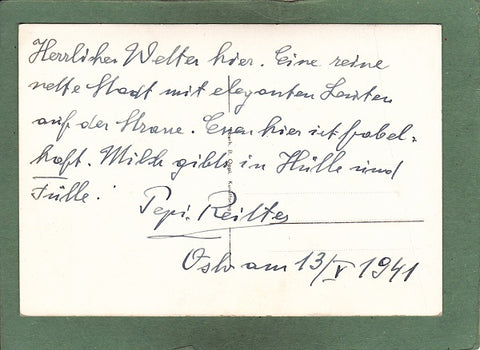 Herrliches Wetter hier. Eine reine
nette Stadt mit eleganten Leuten
auf der Strasse. Essen hier ist fabel-
haft. Milch gibts in Hülle und
Fülle.
Pepi
Oslo am 13/V 1941